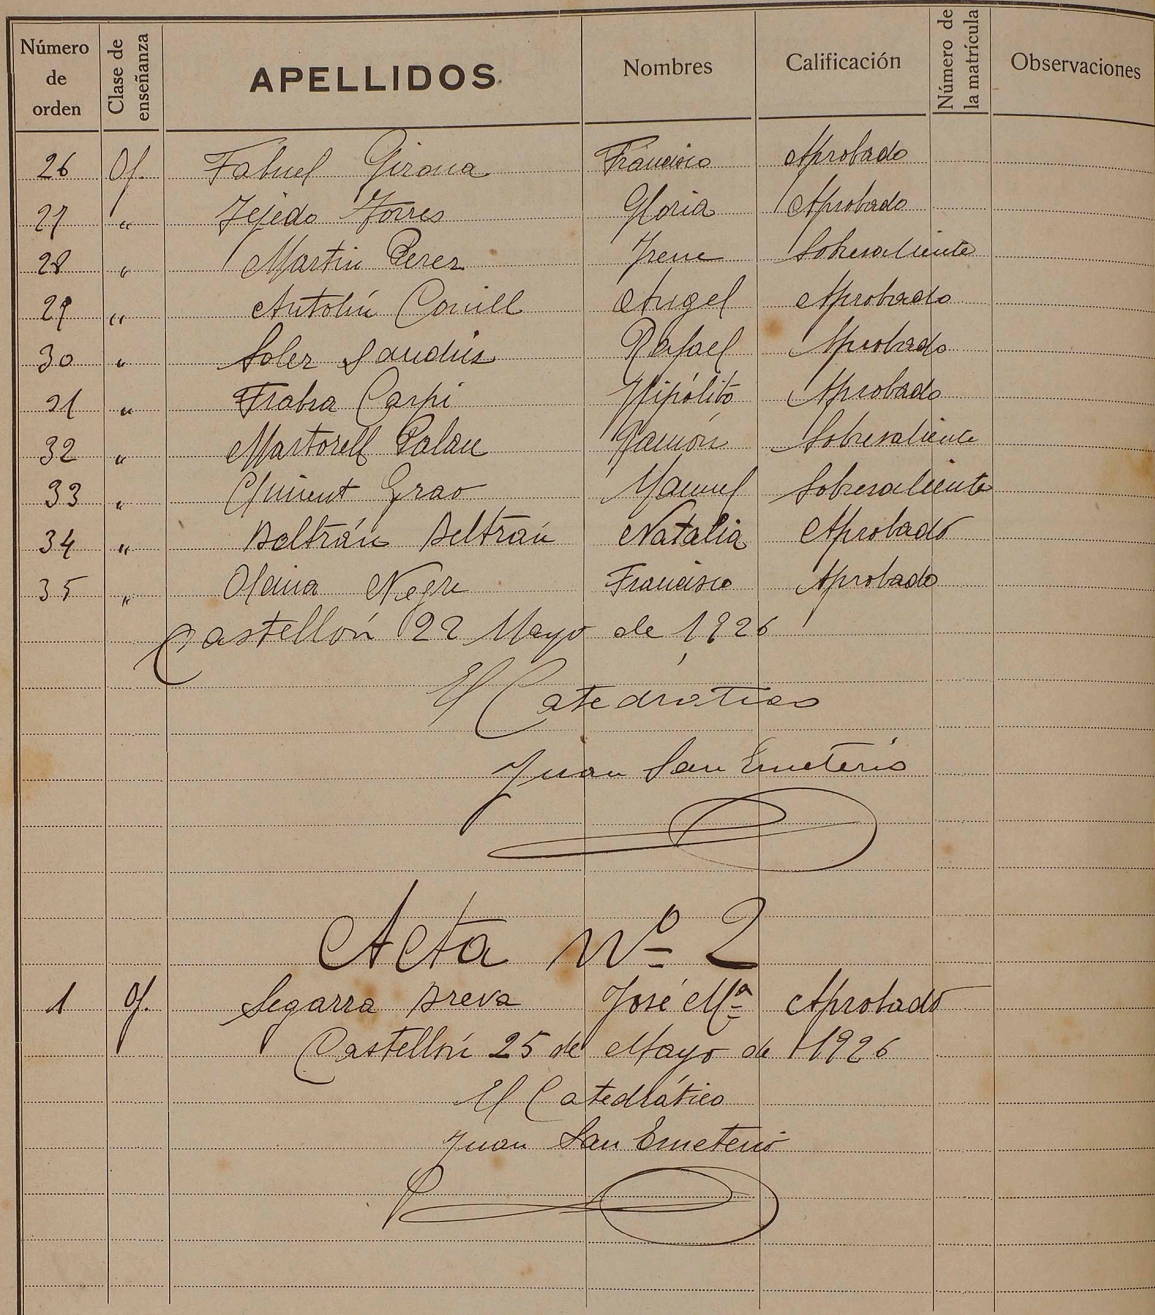 Número de orden Clase de enseñanza APELLIDOS. Nombres Calificación Número de la matrícula Observaciones
26 Of. Fabuel Girona Francisco Aprobado
27 " Tejedo Torres Gloria Aprobado
28 " Martin Perez Irene Sobresaliente
29 " Antolín Conill Angel Aprobado
30 " Soler Rafael Aprobado
31 " Frabra Carpi Hipólito Aprobado
32 " Martorell Palau Ramón Sobresaliente
33 " Climent Grao Manuel Sobresaliente
34 " Beltrán Beltrán Natalia Aprobado
35 " Olcina Negre Francisco Aprobado
Castellón 22 Mayo de 1926
El Catedrático
Juan San Emeterio
Acta nº 2
1 Of. Segarra Breva José Mª Aprobado
Castellón 25 de Mayo de 1926
El Catedrático
Juan San Emeterio